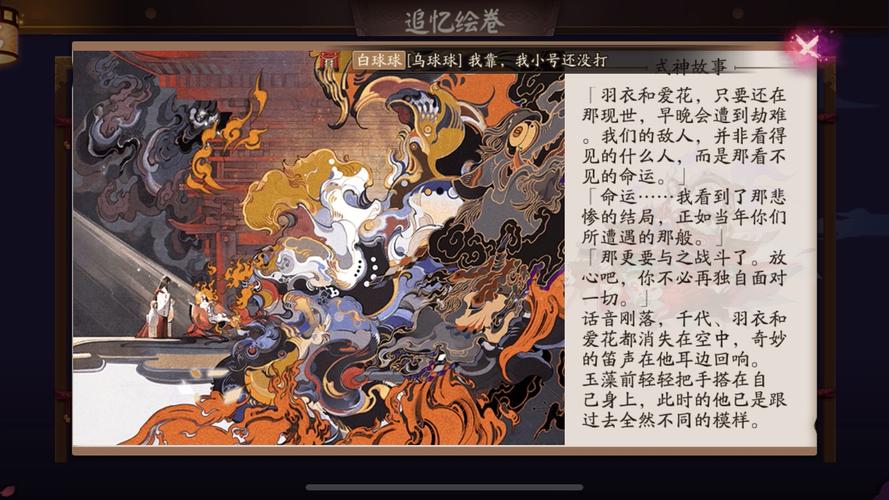 追忆绘卷
白球球[乌球球]我靠，我小号还没打
式神故事
「羽衣和爱花，只要还在
那现世，早晚会遭到劫难
。我们的敌人，并非看得
见的什么人，而是那看不
见的命运。」
「命运……我看到了那悲
惨的结局，正如当年你们
所遭遇的那般。」
「那更要与之战斗了。放
心吧，你不必再独自面对
一切。」
话音刚落，千代、羽衣和
爱花都消失在空中，奇妙
的笛声在他耳边回响。
玉藻前轻轻把手搭在自
己身上，此时的他已是跟
过去全然不同的模样。